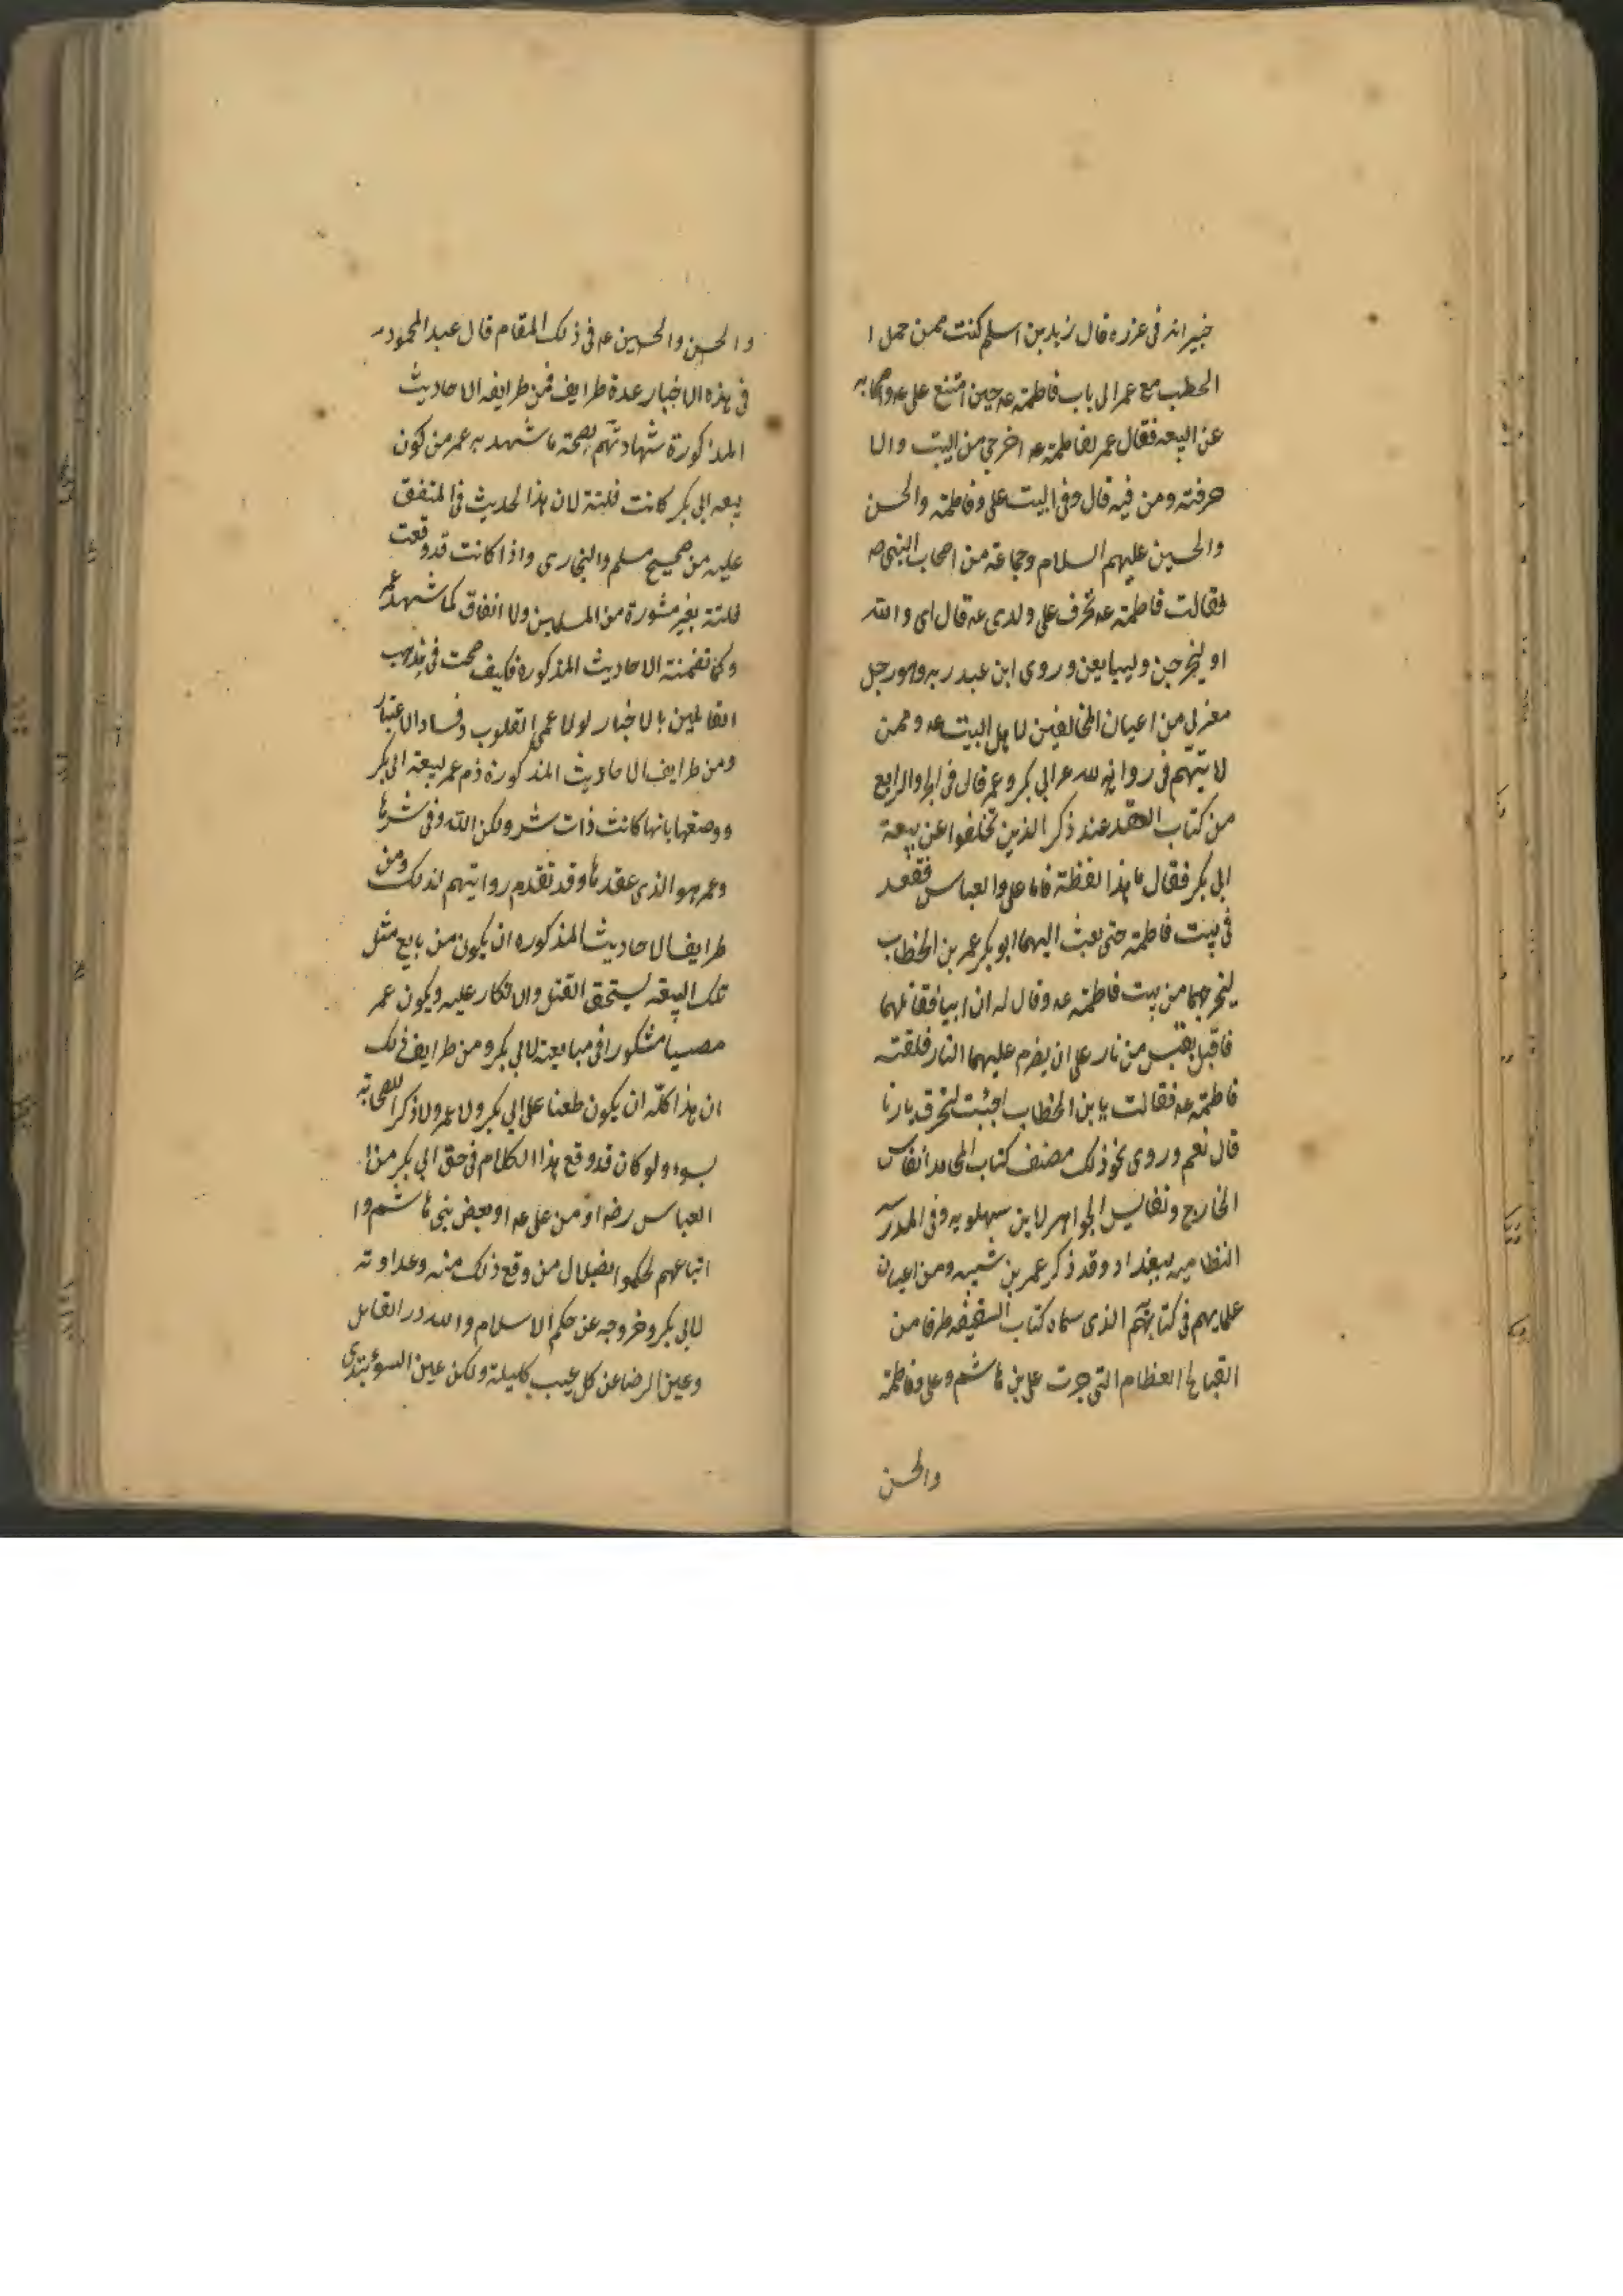 خيرانه في غزره قال زيد بن اسلم كنت ممن حمل ا
الحطب مع عمر الى باب فاطمة عه حين امتنع على عه واصحابه
عن البيعه فقال عمر لفاطمة عه اخرجي من البيت والا
حرقته ومن فيه قال وفى البيت على وفاطمة والحسن
والحسين عليهم السلام وجماعة من اصحاب النبى صه
فقالت فاطمة عه تحرف على ولدى عه قال اى والله
او ليخرجن وليبايعن وروى ابن عبد ربه وهو رجل
معزلى من اعيان المخالفين لاهل البيت عه وممن
لا يتهم فى روايته لله عر ابى بكر وعمر قال فى الجزء الرابع
من كتاب العقد عند ذكر الذين تخلفوا عن بيعة
ابى بكر فقال ما هذا لفظة فاما على والعباس فقعد
فى بيت فاطمة حتى بعث اليهما ابو بكر عمر بن الخطاب
ليخرجهما من بيت فاطمة عه وقال له ان ابيا فقاتلهما
فاقبل بقبس من نار على ان يضرم عليهما النار فلقته
فاطمة عه فقالت يا بن الخطاب اجئت لتحرق دارنا
قال نعم وروى نحو ذلك مصنف كتاب المحامد انفاس
الخارج ونفايس الجواهر لابن سهلويه وفى المدرسه
النظاميه ببغداد وقد ذكر عمر بن شبه ومن اعيان
علمايهم فى كتابهم الذى سماه كتاب السقيفه طرفا من
القبايح العظام التى جرت على بن هاشم وعلى وفاطمة
والحسن
والحسن والحسين عه فى ذلك المقام قال عبد المحمود
فى هذه الاخبار عدة طرايف فمن طرايف الاحاديث
المذكورة شهادتهم بصحة ما شهد به عمر من كون
بيعه ابى بكر كانت فلتة لان هذا الحديث فى المتفق
عليه من صحيح مسلم والبخارى واذا كانت قد وقعت
فلتة بغير مشورة من المسلمين ولا اتفاق كما شهد عمر
وكما تضمنته الاحاديث المذكورة فكيف صحت فى مذهب
القائلين بالاخبار لولا عمى القلوب وفساد الاعتبار
ومن طرايف الاحاديث المذكورة ذم عمر لبيعة ابى بكر
ووصفها بانها كانت ذات شر ولكن الله وفى شرها
وعمر هو الذى عقدها وقد تقدم روايتهم لذلك ومن
طرايف الاحاديث المذكوره ان يكون من بايع مثل
تلك البيعه يستحق القتل والانكار عليه ويكون عمر
مصيبا مشكورا فى مبايعته لابى بكر ومن طرايف ذلك
ان هذا كلّه ان يكون طعنا على ابى بكر ولا عمر ولا ذكرا للصحابة
بسوء ولو كان قد وقع هذا الكلام فى حق ابى بكر من ا
العباس رضه او من على عه او بعض بنى هاشم وا
اتباعهم لحكموا بضلال من وقع ذلك منه وعداوته
لابى بكر وخروجه عن حكم الاسلام ولله در القائل
وعين الرضا عن كل عيب كليلة ولكن عين السوء تبتدى